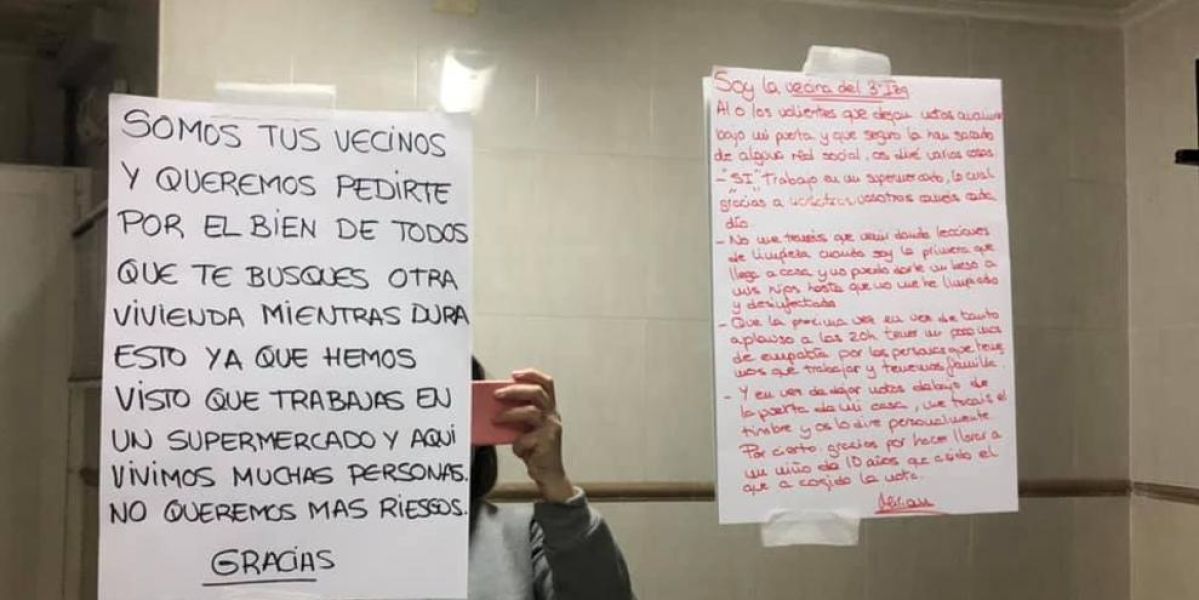 SOMOS TUS VECINOS
Y QUEREMOS PEDIRTE
POR EL BIEN DE TODOS
QUE TE BUSQUES OTRA
VIVIENDA MIENTRAS DURA
ESTO YA QUE HEMOS
VISTO QUE TRABAJAS EN
UN SUPERMERCADO Y AQUI
VIVIMOS MUCHAS PERSONAS.
NO QUEREMOS MAS RIESGOS.
GRACIAS
Soy la vecina del 3º Izq
Al o los valientes que dejan notas
bajo mi puerta y que seguro la han sacado
de alguna red social, os diré varias cosas
- "SI" Trabajo en un supermercado, lo cual
gracias a vosotros coméis cada
día.
- No me tenéis que venir dando lecciones
de limpieza cuando soy la primera que
llega a casa y no puedo darle un beso a
mis hijos hasta que no me he limpiado
y desinfectado
- Que la proxima vez en vez de tanto
aplauso a las 20h tener un poco mas
de empatía por las personas que tene
mos que trabajar y tenemos familia.
- Y en vez de dejar notas debajo de
la puerta de mi casa, me tocais el
timbre y os lo dire personalmente.
Por cierto, gracias por hacer llorar a
un niño de 10 años que a sido el
que a cogido la nota.
Miriam